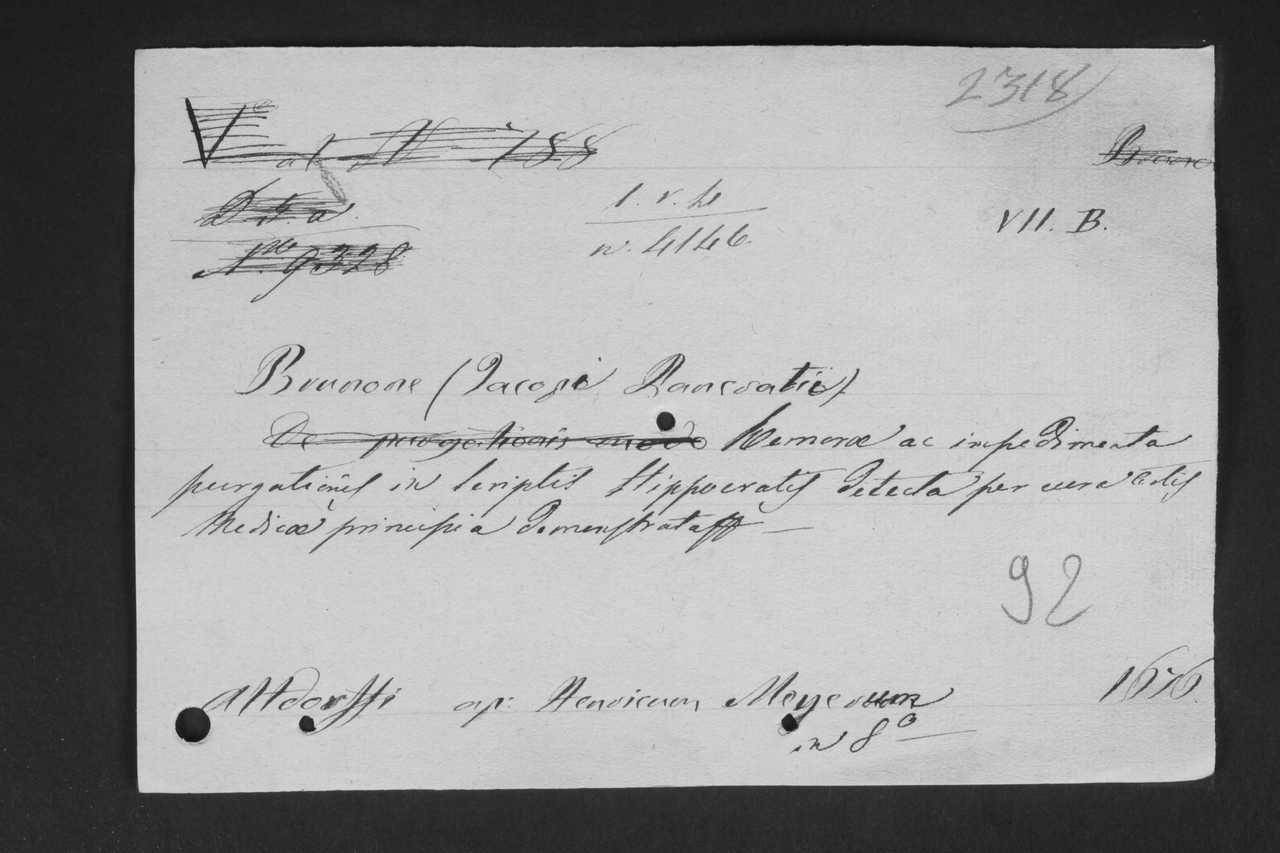 2318
V
al N 788
Brunone
D. 4. a.
1. v. h
VII. B.
No. 9328
n. 4146.
Brunone (Jacopi Pancratii)
De purgationis modo Remoræ ac impedimenta
purgationis in scriptis Hippocratis detecta per vera
Medicæ principia demonstrata
92
Altdorffi ap: Henricum Meyerum 1676
in 8o